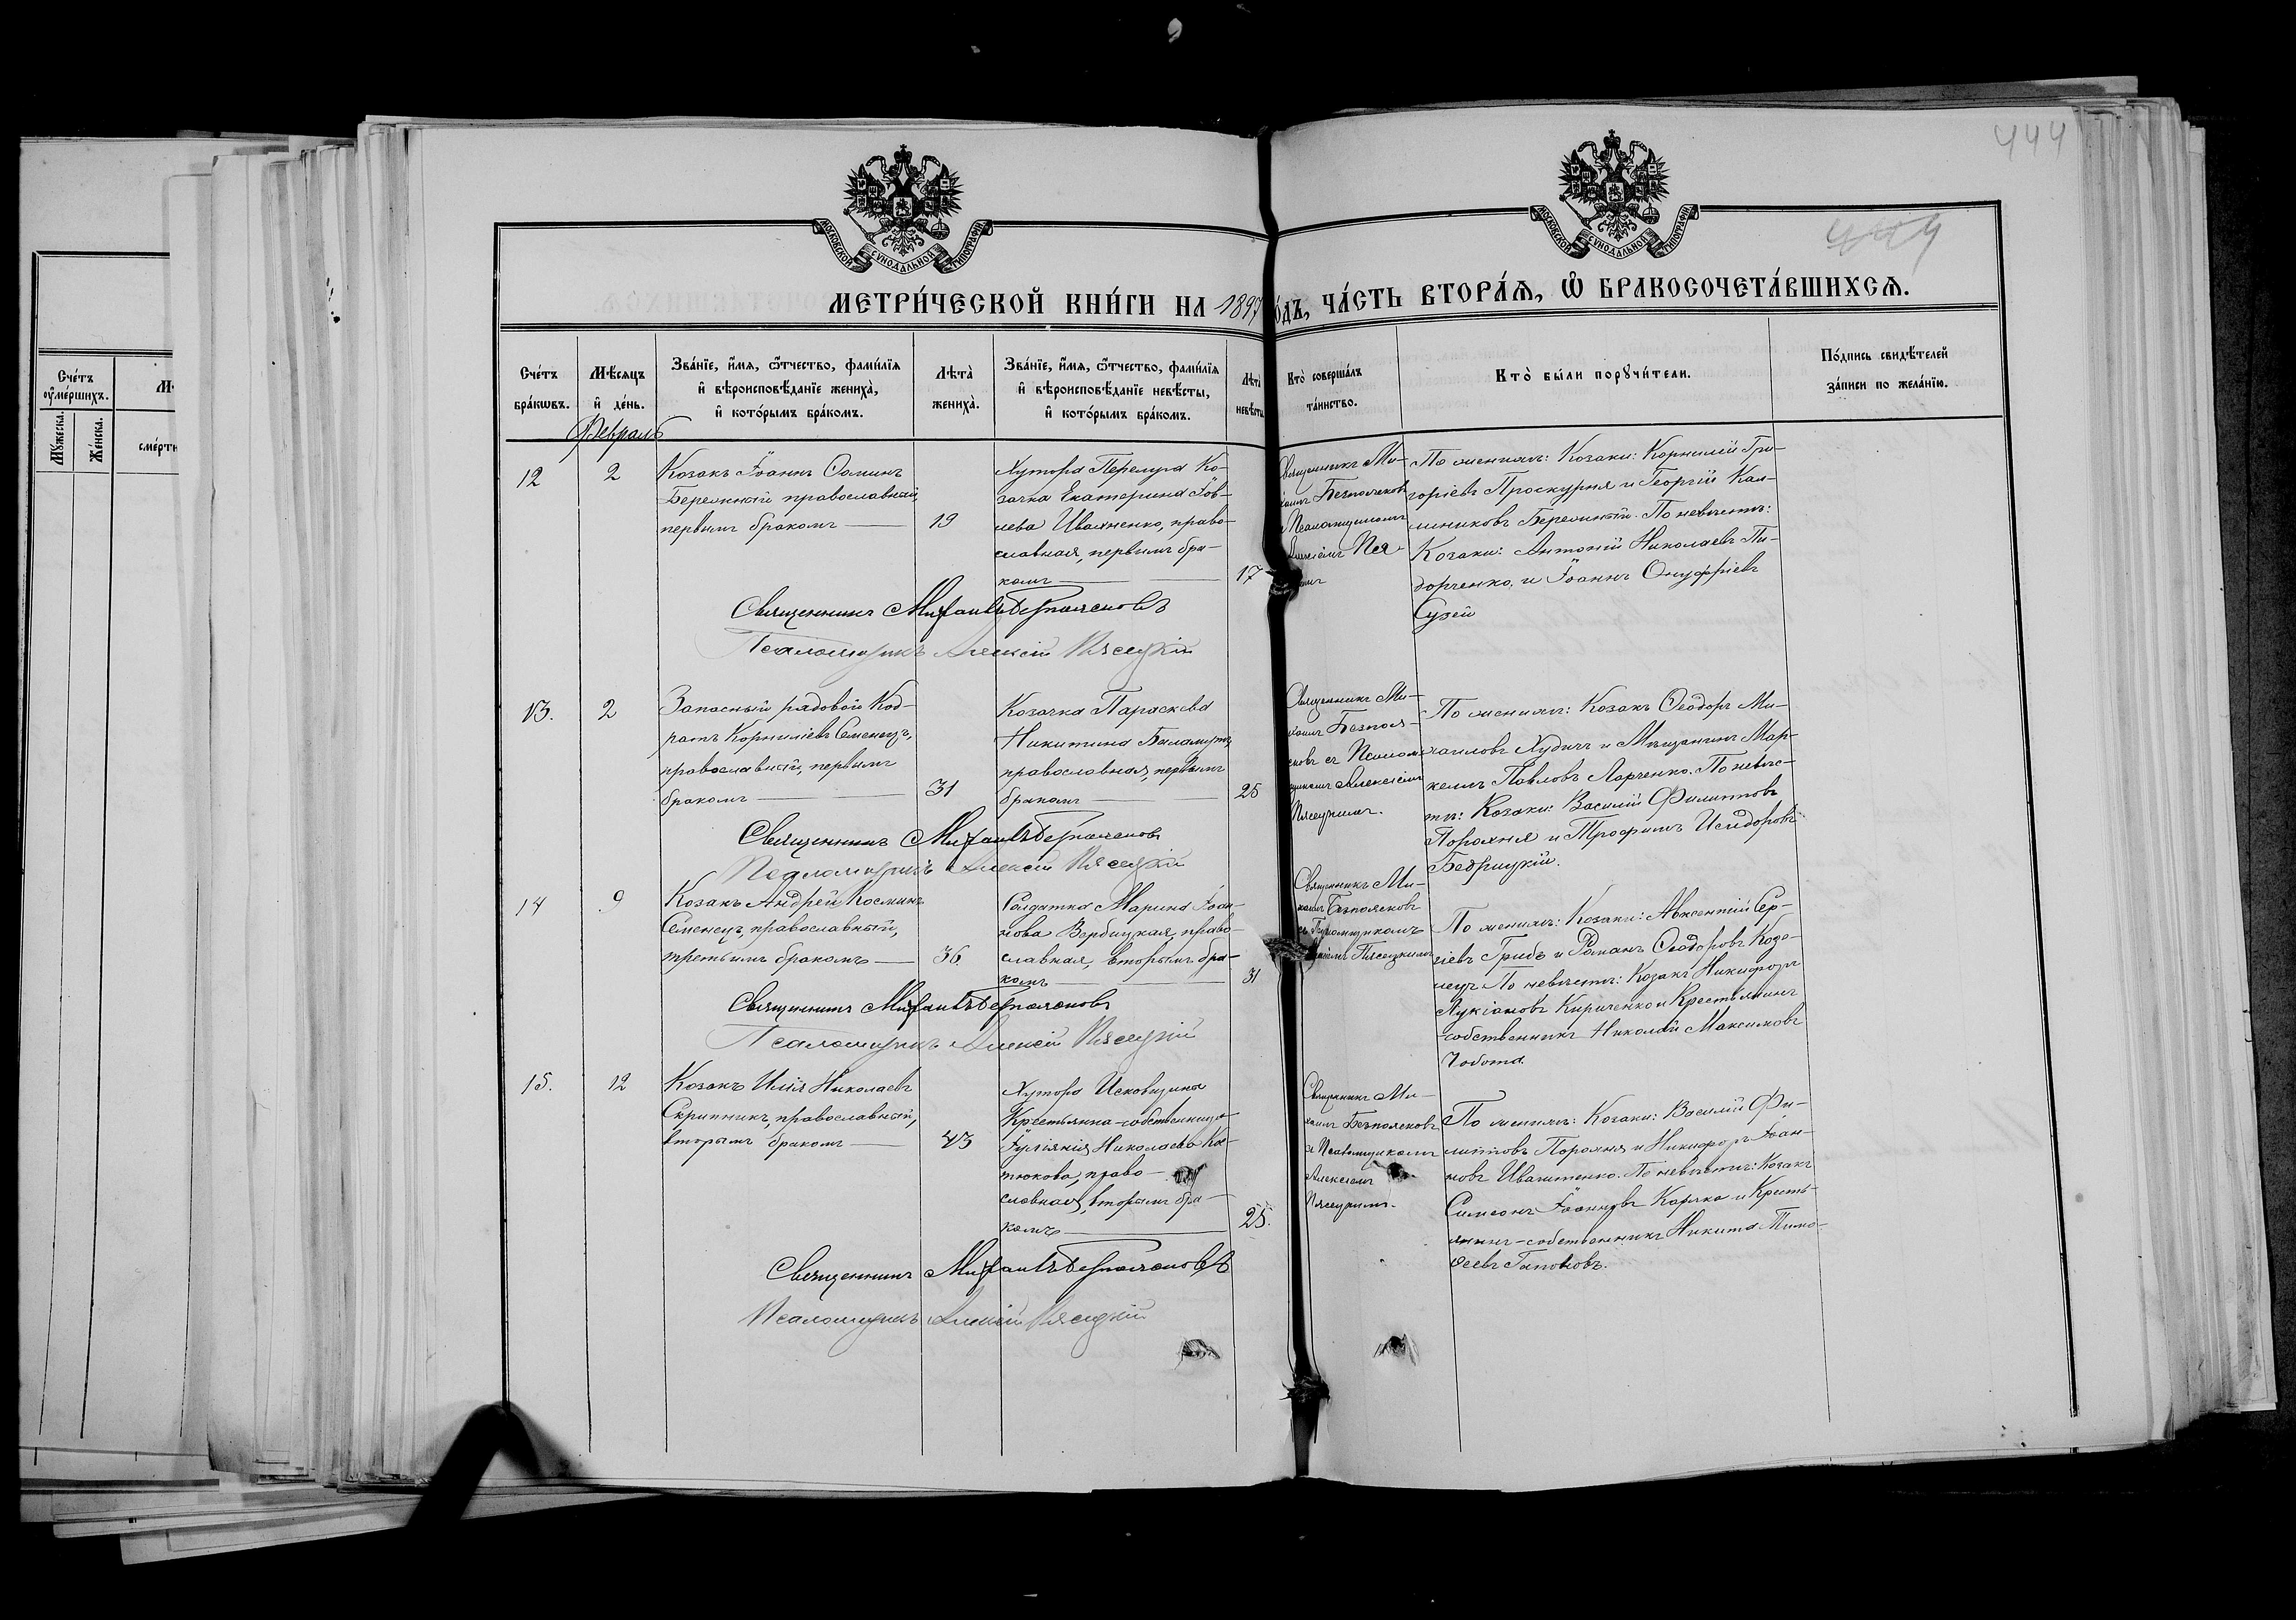 444
444
МОСКОВСКОЙ СУНОДАЛЬНОЙ ТИПОГРАФІИ
МОСКОВСКОЙ СУНОДАЛЬНОЙ ТИПОГРАФІИ
МЕТРИ́ЧЕСКОЙ КНИ́ГИ НА 1897 го́дъ, ЧА́СТЬ ВТОРА́Ѧ, Ѽ БРАКОСОЧЕТА́ВШИХСѦ.
Сче́тъ ᲂу҆ме́ршихъ.
Мꙋ́жеска.
Же́нска.
смерти
Сче́тъ бра́кѡвъ.
Мѣ́сѧцъ и҆ де́нь.
Зва́нїе, и҆́мѧ, ѻ҆́тчество, фами́лїѧ и҆ вѣроисповѣ́данїе жениха̀, и҆ кото́рымъ бра́комъ.
Лѣ́та̀ жениха̀.
Зва́нїе, и҆́мѧ, ѻ҆́тчество, фами́лїѧ и҆ вѣроисповѣ́данїе невѣ́сты, и҆ кото́рымъ бра́комъ.
Лѣ́та̀ невѣ́сты
Кто̀ соверша́лъ та́инство.
Кто̀ бы́ли порꙋчи́тели.
По́дпись свидѣ́телей за́писи по жела́нїю.
Февраль
12
2
Козакъ Іоаннъ Самın
Бережный православный,
первымъ бракомъ
19
Хутора Перелура Ко-
зачка Екатерина Іов-
лева Ивахненко, право-
славная, первымъ бра-
комъ
17
Священникъ Ми-
хаилъ Безпоясковъ
Псаломщикомъ
По женихѣ: Козаки: Корнилій Гри-
горіевъ Проскурня и Георгій Кал-
линиковъ Бережный. По невѣстѣ:
Козаки: Антоній Николаевъ Пи-
дорченко, и Іоаннъ Онуфріевъ
Сузей
Священникъ Михаилъ Безпоясковъ
Псаломщикъ Алексій Пясецкій
13.
2
Запасный рядовой Код-
ратъ Корниліевъ Семенецъ,
православный, первымъ
бракомъ
31
Козачка Параскева
Никитина Баламутъ,
православная, первымъ
бракомъ
25
Священникъ Ми-
хаилъ Безпоя-
сковъ съ Псалом-
щикомъ Алексіемъ
Пясецкимъ.
По женихѣ: Козакъ Ѳеодоръ Ми-
хаиловъ Худичъ и Мѣщанинъ Мар-
келъ Павловъ Ларченко. По невѣс-
тѣ: Козаки: Василій Филипповъ
Порохня и Трофимъ Исидоровъ
Бедрицкій.
Священникъ Михаилъ Безпоясковъ
Псаломщикъ Алексій Пясецкій
14
9
Козакъ Андрей Косминъ
Семенецъ, православный,
третьимъ бракомъ
36
Солдатка Марина Іоан-
нова Вербицкая, право-
славная, вторымъ бра-
комъ
31
Священникъ Ми-
хаилъ Безпоясковъ
съ Псаломщикомъ
Алексіемъ Пясецкимъ
По женихѣ: Козаки: Авксентій Сер-
гіевъ Грибъ и Романъ Ѳеодоровъ Козе-
лецъ. По невѣстѣ: Козакъ Никифоръ
Лукіановъ Кириченко и Крестьянинъ
собственникъ Николай Максимовъ
Чобота.
Священникъ Михаилъ Безпоясковъ
Псаломщикъ Алексій Пясецкій
15.
12
Козакъ Илія Николаевъ
Скрипникъ, православный,
вторымъ бракомъ
43
Хутора Исковщина
Крестьянка-собственница
Іуліанія Николаева Ко-
тюкова, право-
славная, вторымъ бра-
комъ
25.
Священникъ Ми-
хаилъ Безпоясковъ
съ Псаломщикомъ
Алексіемъ
Пясецкимъ.
По женихѣ: Козаки: Василій Фи-
липповъ Порохня и Никифоръ Іоан-
новъ Ивашненко. По невѣстѣ: Козакъ
Симеонъ Іоанновъ Каряка и Кресть-
янинъ-собственникъ Никита Тимо-
ѳеевъ Гапоновъ.
Священникъ Михаилъ Безпоясковъ
Псаломщикъ Алексій Пясецкій